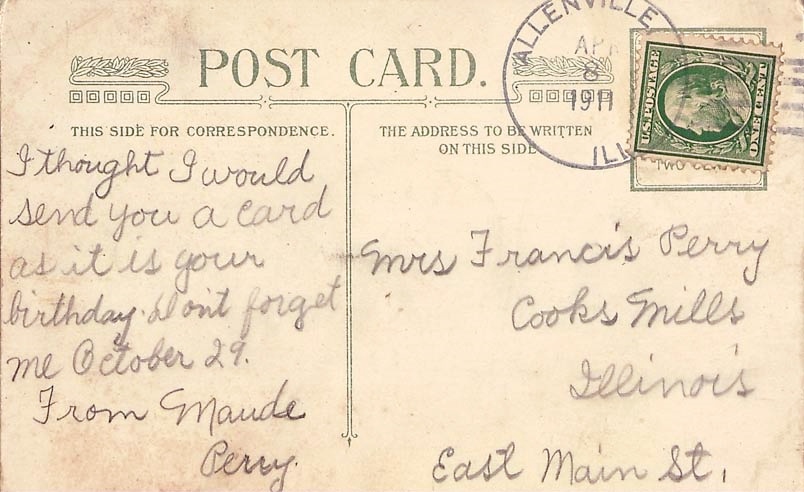 POST CARD.
ALLENVILLE
APR
8
1911
ILL
U.S. POSTAGE
ONE CENT
THIS SIDE FOR CORRESPONDENCE.
THE ADDRESS TO BE WRITTEN
ON THIS SIDE
TWO CEN
I thought I would
send you a card
as it is your
birthday. Don't forget
me October 29.
From Maude
Perry.
Mrs Francis Perry
Cooks Mills
Illinois
East Main St.